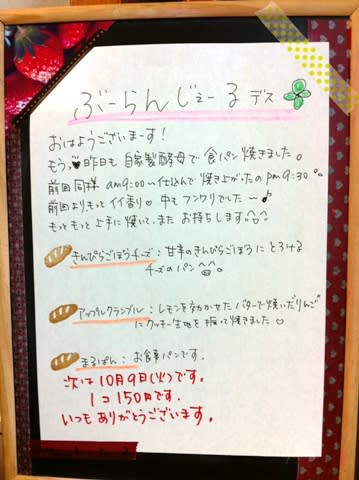 ぶーらんじぇーる デス
おはようございまーす!
もう、昨日も 自家製酵母で 食パン焼きました。
前回同様 am9:00〜仕込んで 焼き上がったの pm9:30
前回より、もっと イイ香り 中も フンワリでしたー♪
もっともっと 上手に焼いて、また お持ちします。^^
きんぴらごぼうチーズ : 甘辛のきんぴらごぼうに とろける
チーズのパン ^^
アップルクランブル : レモンを効かせた バターで焼いたりんご
にクッキー生地を 振って焼きました
まるぱん : お食事パンです.
次は 10月9日(火)です。
1コ 150円です.
いつも ありがとうございます。